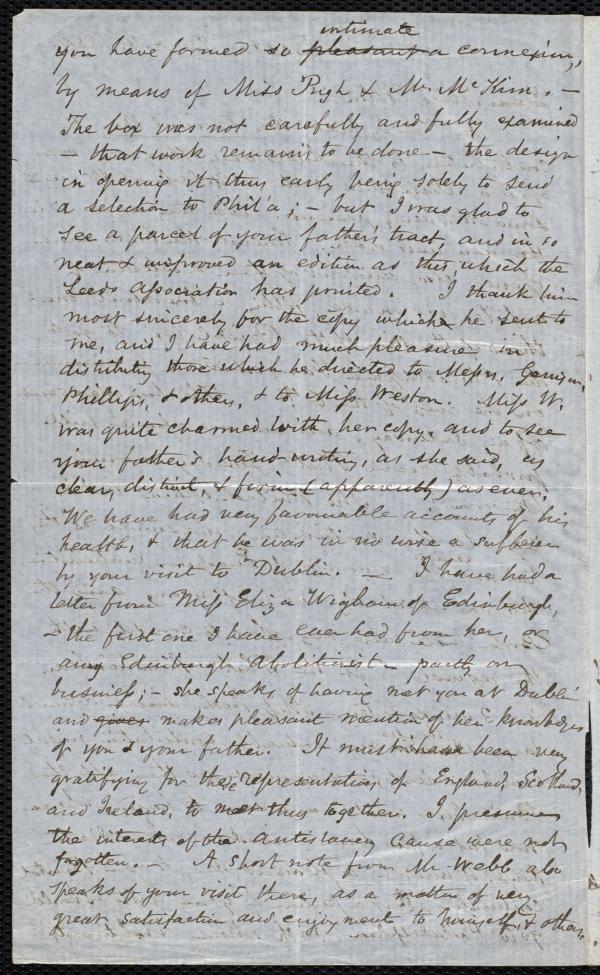 intimate
you have formed so pleasant a connexion,
by means of Miss Pugh & Mr. McKim. —
The box was not carefully and fully examined
— that work remains to be done — the design
in opening it thus early being solely to send
a selection to Phil'a; — but I was glad to
see a parcel of your father's tract, and in so
neat & improved an edition as this, which the
Leeds Association has printed. I thank him
most sincerely for the copy which he sent to
me, and I have had much pleasure in
distributing those which he directed to Messrs. Garrison,
Phillips, & others, & to Miss Weston. Miss W.
was quite charmed with her copy, and to see
your father's hand-writing, as she said, as
clear, distinct, & firm (apparently) as ever.
We have had very favourable accounts of his
health, & that he was in no wise a sufferer
by your visit to Dublin. — I have had a
letter from Miss Eliza Wigham of Edinburgh,
— the first one I have ever had from her, or
any Edinburgh Abolitionist — partly on
business; — she speaks of having met you at Dublin
and gives makes pleasant mention of her knowledge
of you & your father. It must have been very
gratifying for the representatives of England, Scotland,
and Ireland, to meet thus together. I presume
the interests of the antislavery cause were not
forgotten. — A short note from Mr. Webb also
speaks of your visit there, as a matter of very
great satisfaction and enjoyment to himself, & others.